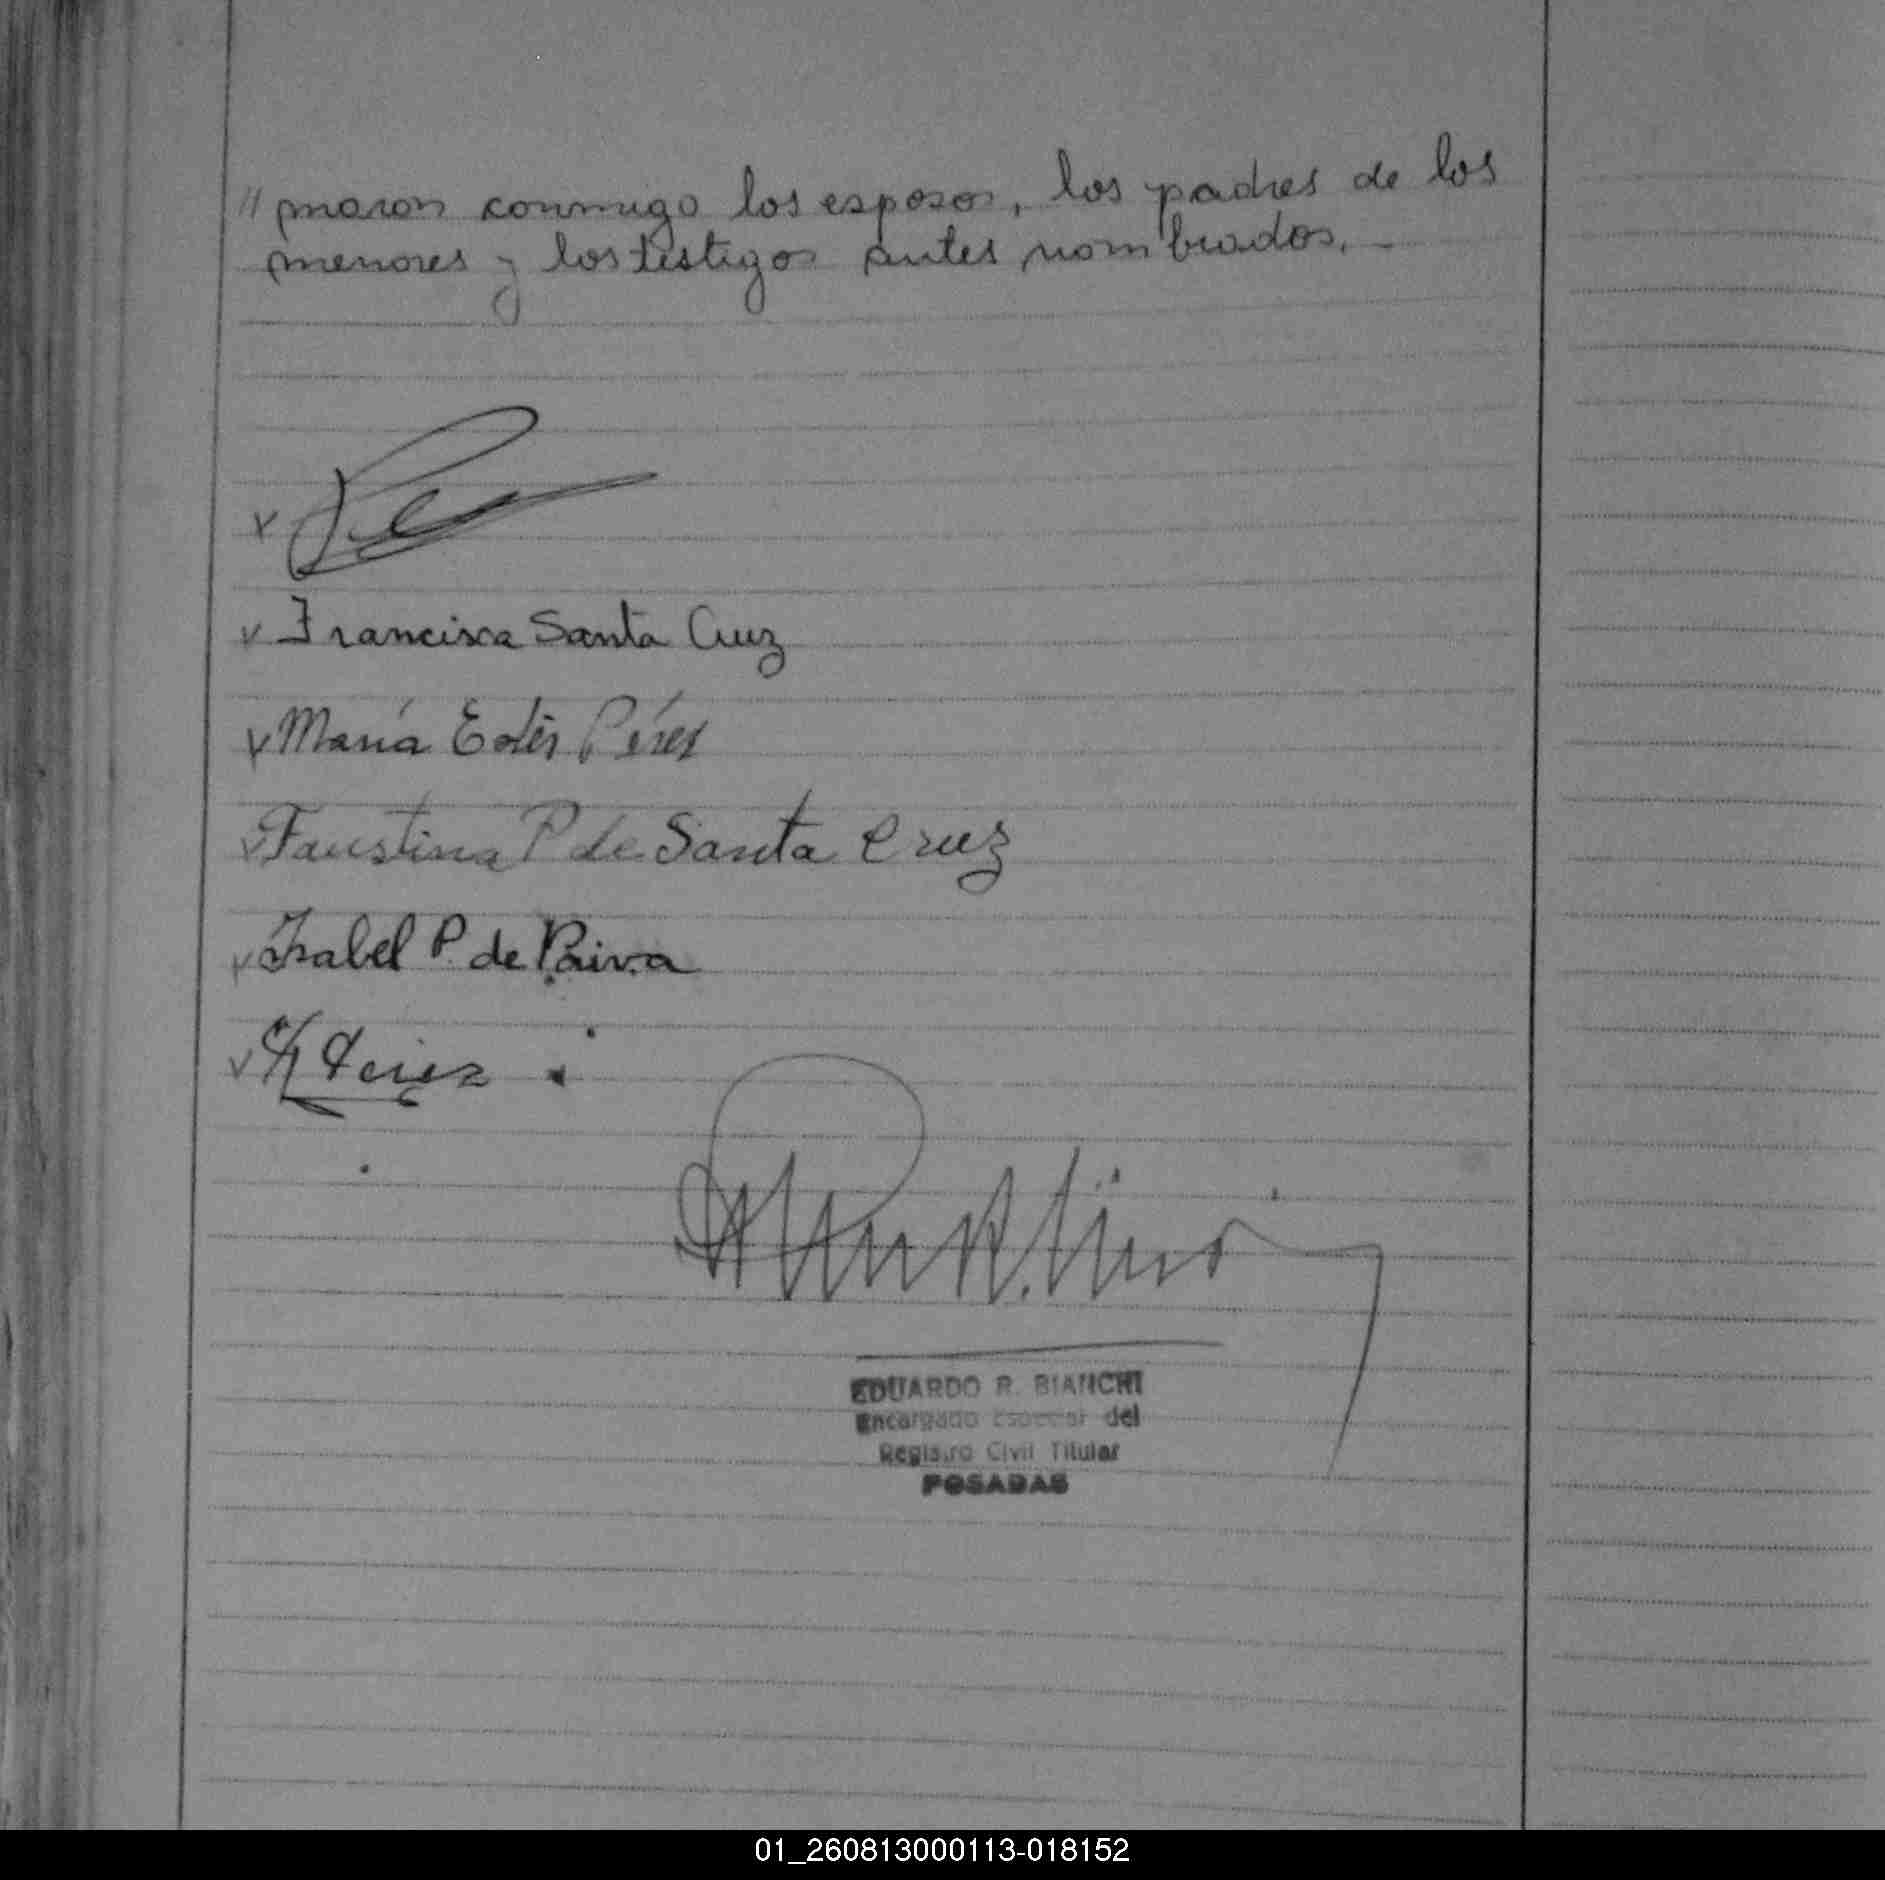 // maron conmigo los esposos, los padres de los
menores y los testigos antes nombrados.-
v
v Francisca Santa Cruz
v María Pérez
v Faustina P de Santa Cruz
v Isabel P. de Paiva
v Perez
EDUARDO R. BIANCHI
Encargado Especial del
Registro Civil Titular
POSADAS
01_260813000113-018152